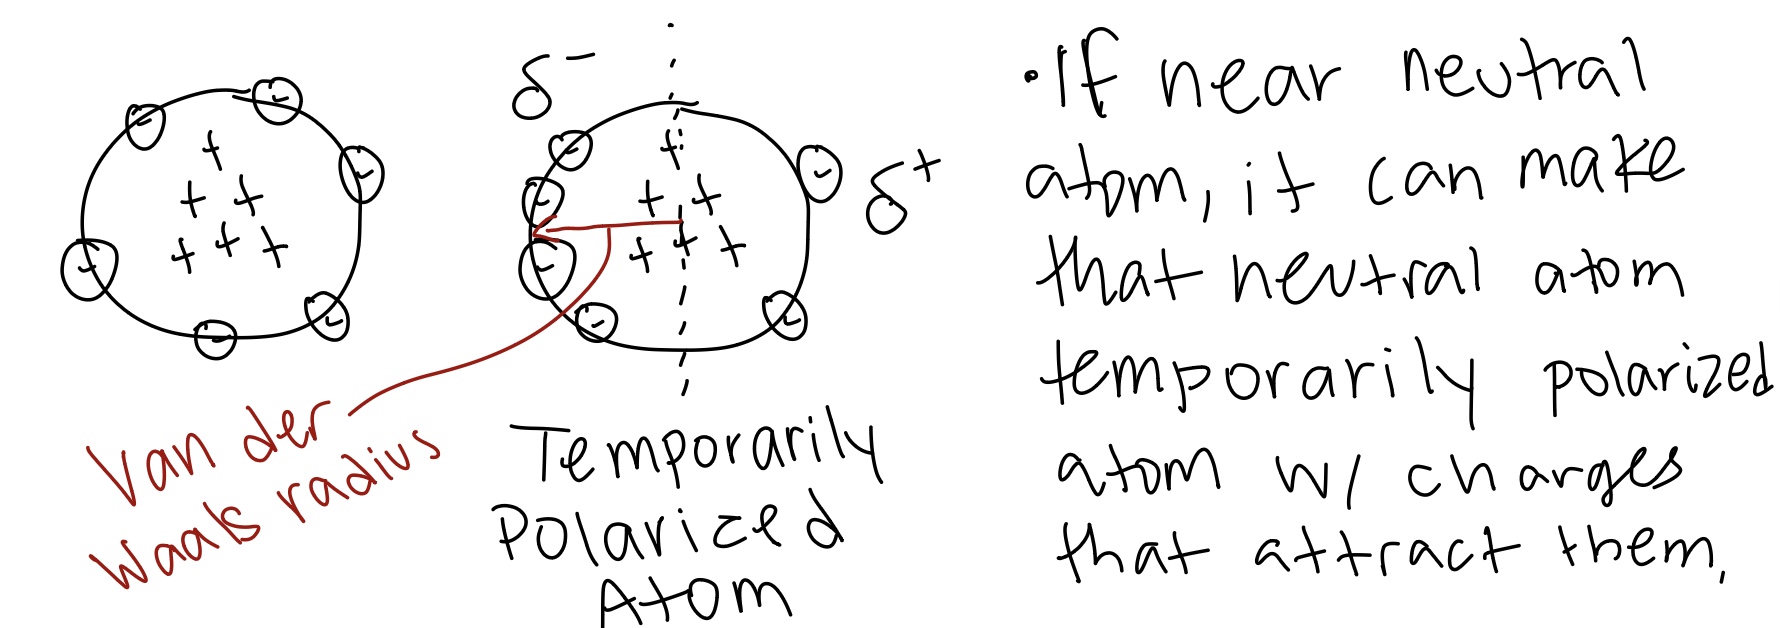 δ⁻
δ⁺
Van der
Waals radius
Temporarily
Polarized
Atom
• If near neutral
atom, it can make
that neutral atom
temporarily polarized
atom w/ charges
that attract them.